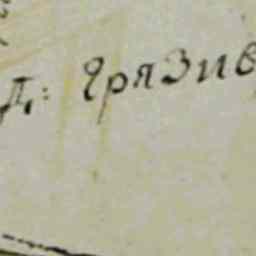 Д: Грязив